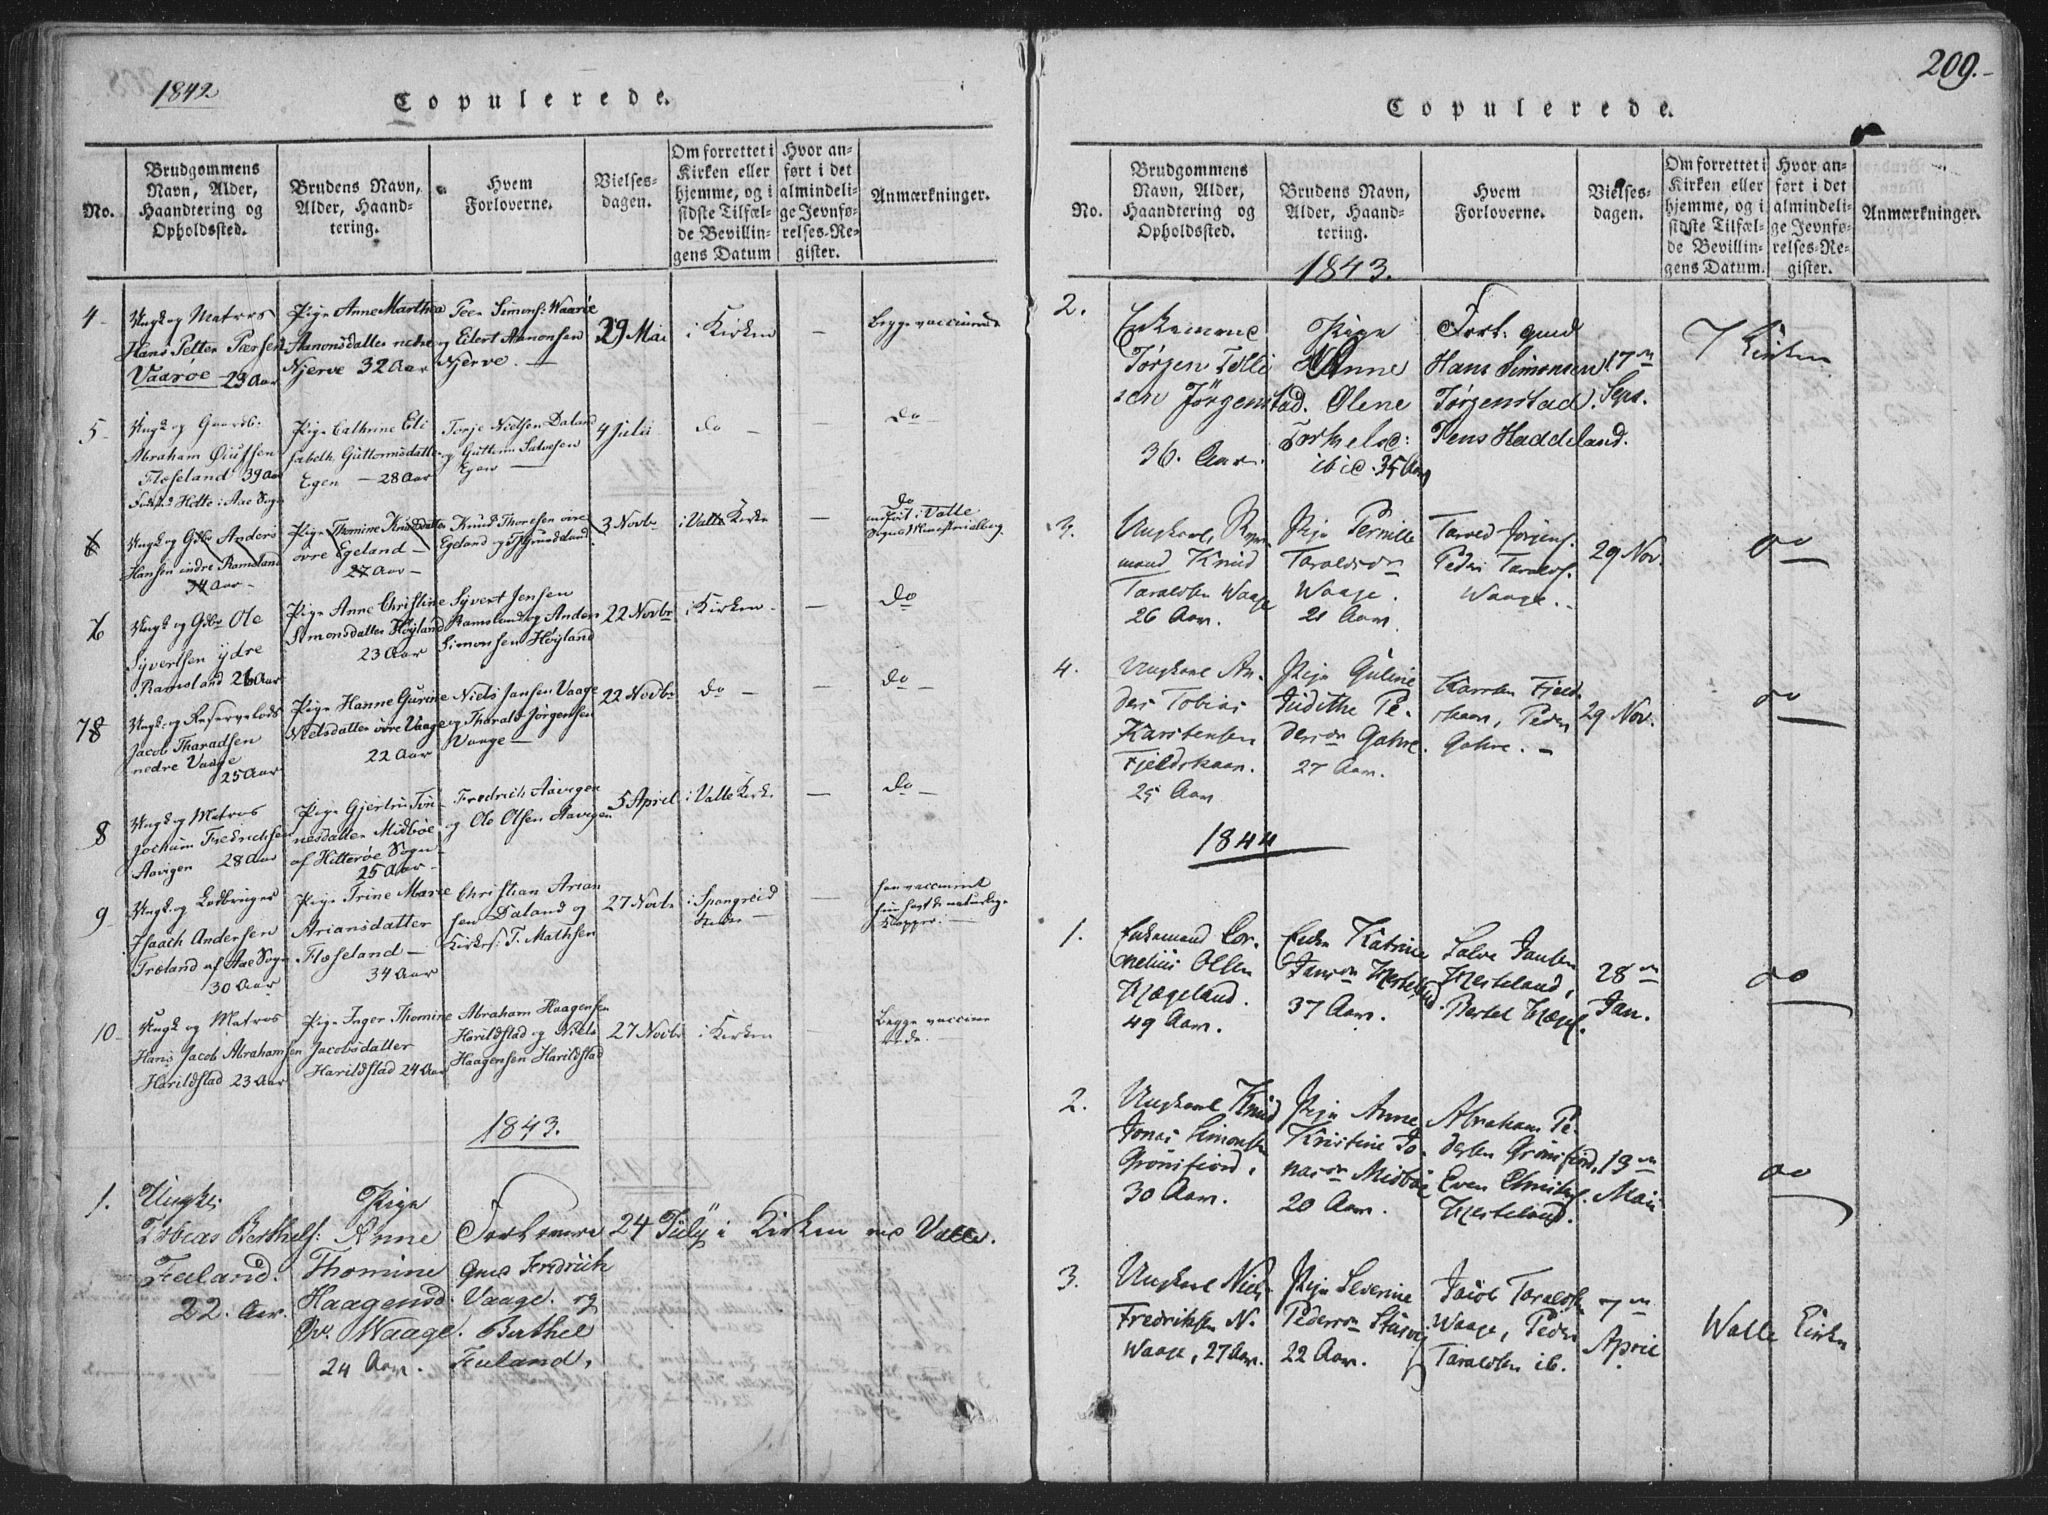 1842
Copulerede.
No.
Brudgommens
Navn, Alder,
Haandtering og
Opholdssted.
Brudens Navn,
Alder, Haand-
tering.
Hvem
Forloverne.
Vielses-
dagen.
Om forrettet i
Kirken eller
hjemme, og i
sidste Tilfæl-
de Bevillin-
gens Datum
Hvor an-
ført i det
almindeli-
ge Jevnfø-
relses-Re-
gister.
Anmærkninger.
4
Ungk og Matros
Hans Petter Pærsen
Vaarøe 29 Aar
Pige Anne Marthea
Aanonsdatter nedre
Njerve 32 Aar
Peer Simons: Waarøe
og Eilert Aanonsen
Njerve.
29 Mai
i Kirken
Begge vaccinerede
5
Ungk og Gaardb:
Abraham
Floeseland 39 Aar
i Aae Sogn
Pige Cathrine Eli
sabeth Guttormsdatter
Egen 28 Aar
Torje Nielsen Daland
og Guttorm Salvesen
Egen
4 Julii
do
do
6
Ungk og Gdbr Anders
Hansen indre Ramsland
34 Aar
Pige Thomine Knudsdatter
øvre Egeland
27 Aar
Knud Thoresen øvre
Egeland og
3 Novbr
i Valle Kirke
do
indført i Valle
Sogns Ministerialbog
7
Ungk og Gdbr Ole
Syvertsen ydre
Ramsland 26 Aar
Pige Anne Christine
Simonsdatter Høyland
23 Aar
Syvert Jensen
Ramsland og Anders
Simonsen Høyland
22 Novbr
i Kirken
do
78
Ungk og Reservelods
Jacob Tharadsen
nedre Vaage
25 Aar
Pige Hanne Gurine
Nielsdatter øvre Vaage
22 Aar
Niels Jansen Vaage
og Tharald Jørgensen
Vaage
22 Novbr
do
do
8
Ungk og Matros
Jochum Fredrichsen
Aavigen 28 Aar
Pige Gjertru Tøn
nesdatter Midbøe
af Hitterøe Sogn
25 Aar
Fredrich Aavigen
og Ole Olsen Aavigen
5 April
i Valle Kirke
do
9
Ungk og Lodbruger
Isaach Andersen
Træland af Aae Sogn
30 Aar
Pige Trine Marie
Ariansdatter
Floeseland
34 Aar
Christian Arian
sen Daland og
Kirkes: T. Mathsen
27 Novbr
i Spangreid
Kirke
han vaccineret
hun havt de naturlige
Kopper.
10
Ungk og Matros
Hans Jacob Abrahamsen
Harildstad 23 Aar
Pige Inger Thomine
Jacobsdatter
Harildstad 24 Aar
Abraham Haagensen
Harildstad og Niels
Haagensen Harildstad
27 Novbr
i Kirken
Begge vaccine
rede.
1843.
1.
Ungk:
Tobias Berthels:
Feiland.
22. Aar.
Pige
Anne
Thomine
Haagensd.
Øv. Waage.
24 Aar.
Forlovere
Fredrich
Vaage. og
Berthel
Feiland.
24 July
i Kirken ved Valle.
209.
Copulerede.
No.
Brudgommens
Navn, Alder,
Haandtering og
Opholdssted.
Brudens Navn,
Alder, Haand-
tering.
Hvem
Forloverne.
Vielses-
dagen.
Om forrettet i
Kirken eller
hjemme, og i
sidste Tilfæl-
de Bevillin-
gens Datum.
Hvor an-
ført i det
almindeli-
ge Jevnfø-
relses-Re-
gister.
Anmærkninger.
1843.
2.
Enkemand
Jørgen Tolli
sen Jørgenstad.
36. Aar.
Pige
Anne
Olene
Torkelsd:
ibid. 35 Aar
Forl:
Hans Simonsen
Jørgenstad.
Jens Haddeland.
17de
Sept.
I Kirken
3.
Ungkarl,
mand Knud
Taraldsen Waage
26 Aar.
Pige Pernille
Taraldsdn
Waage.
21 Aar.
Tarved Jørgens.
Peder Taralds.
Waage.
29 Nov.
do
4.
Ungkarl An-
ders Tobias
Karstensen
Fjeldskaar.
25 Aar
Pige Guline
Judithe Pe-
dersdn Gahre.
27 Aar.
Karsten Fjeld-
skaar, Peder
Gahre.
29 Nov.
do
1844
1.
Enkemand Cor-
nelius Olsen
Hægeland.
49 Aar.
Enke Katrine
Jansdn Herteland.
37 Aar.
Salve Jansen
Herteland,
Bertel Hægel.
28de
Jan.
do
2.
Ungkarl Knud
Jonas Simonsen
Grønsfiord,
30 Aar.
Pige Anne
Kristine Jo-
nasdn Midbøe
20 Aar.
Abraham Pe-
dersen Grønsfiord,
Even
Herteland.
19de
Mai
do
3.
Ungkarl Niels
Fredriksen N.
Waage, 27 Aar.
Pige Severine
Pedersdn
22 Aar.
Jacob Taraldsen
Waage, Peder
Taraldsen ib.
7de
April
Walle Kirke